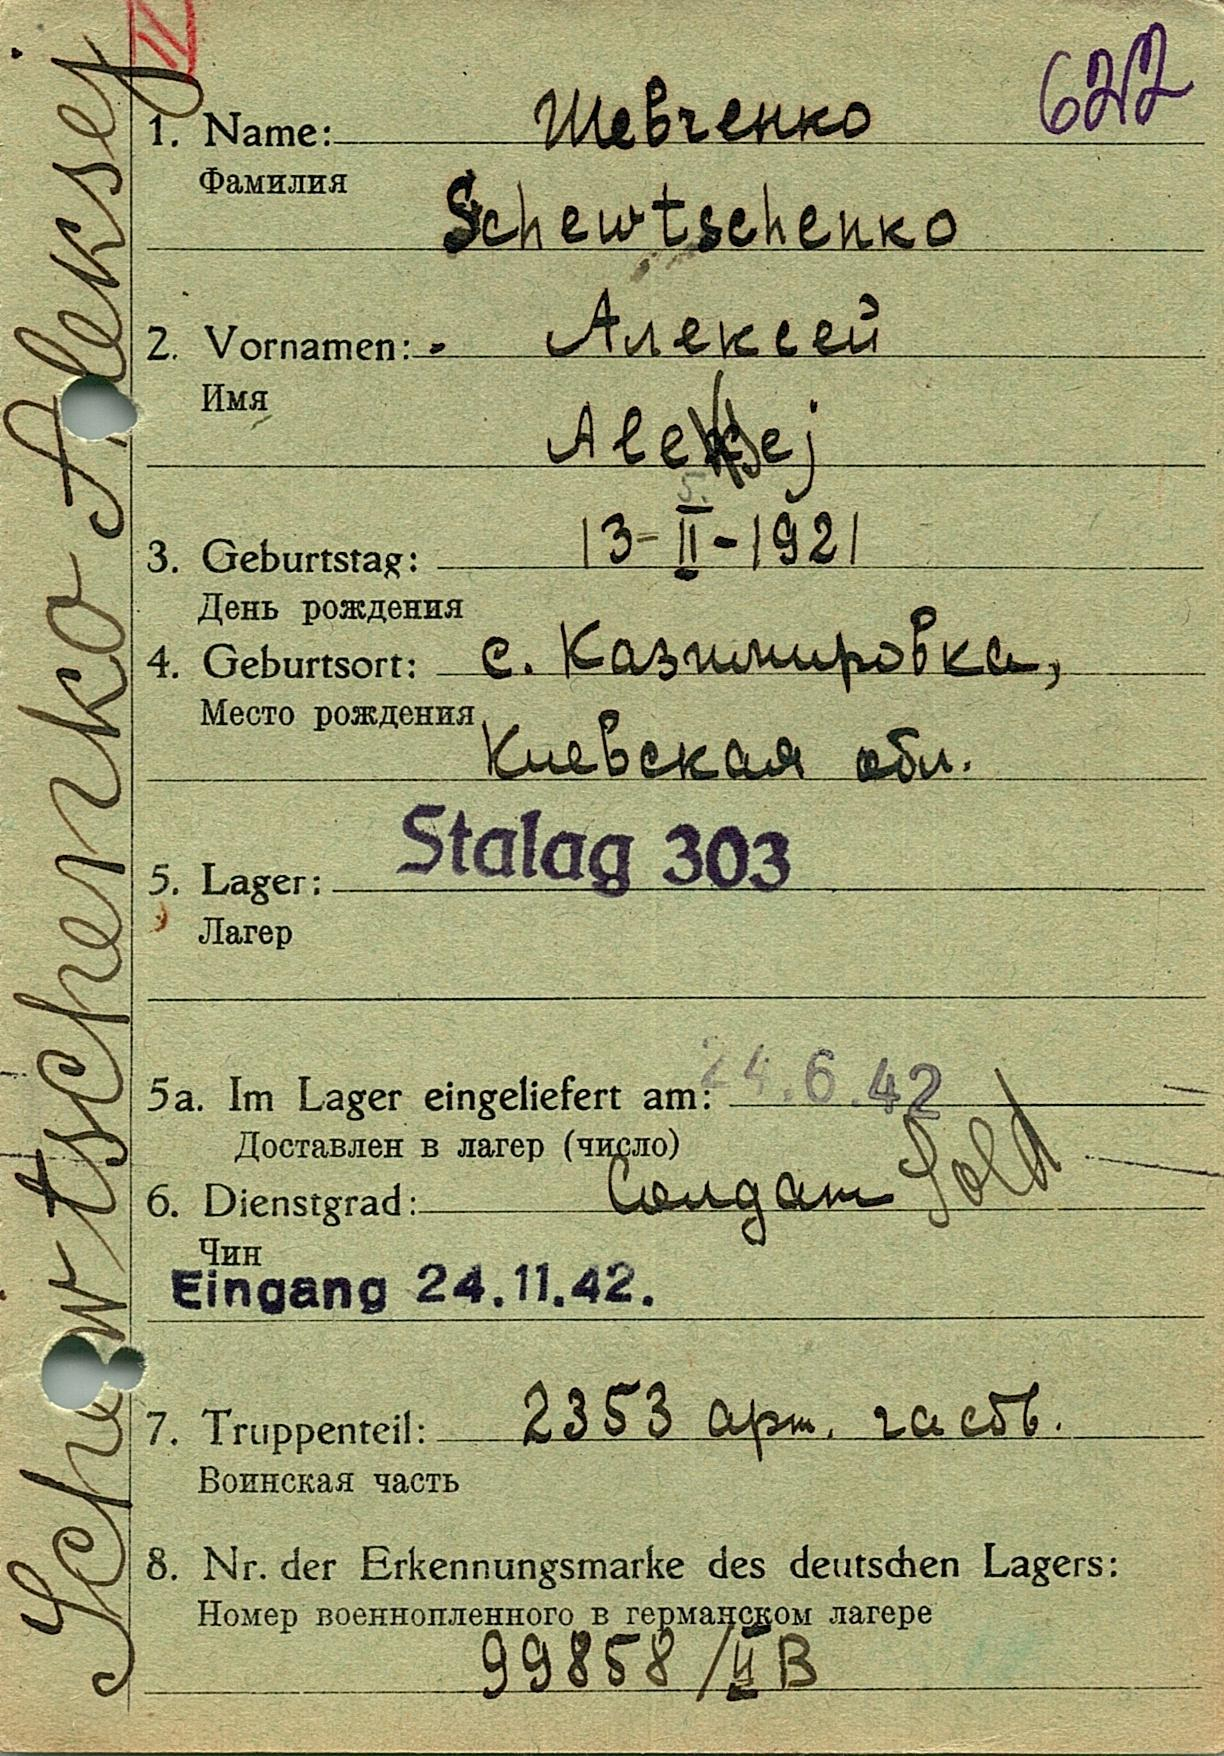 Schewtschenko Aleksej
II
622
1. Name: Шевченко
Фамилия
Schewtschenko
2. Vornamen: Алексей
Имя
Aleksej
5.
3. Geburtstag: 13-II-1921
День рождения
4. Geburtsort: с. Казимировка,
Место рождения
Киевская обл.
Stalag 303
5. Lager:
Лагер
5a. Im Lager eingeliefert am: 24.6.42
Доставлен в лагер (число)
6. Dienstgrad: Солдат Sold
Чин
Eingang 24.11.42.
7. Truppenteil: 2353 арт. часть.
Воинская часть
8. Nr. der Erkennungsmarke des deutschen Lagers:
Номер военнопленного в германском лагере
99858/II B